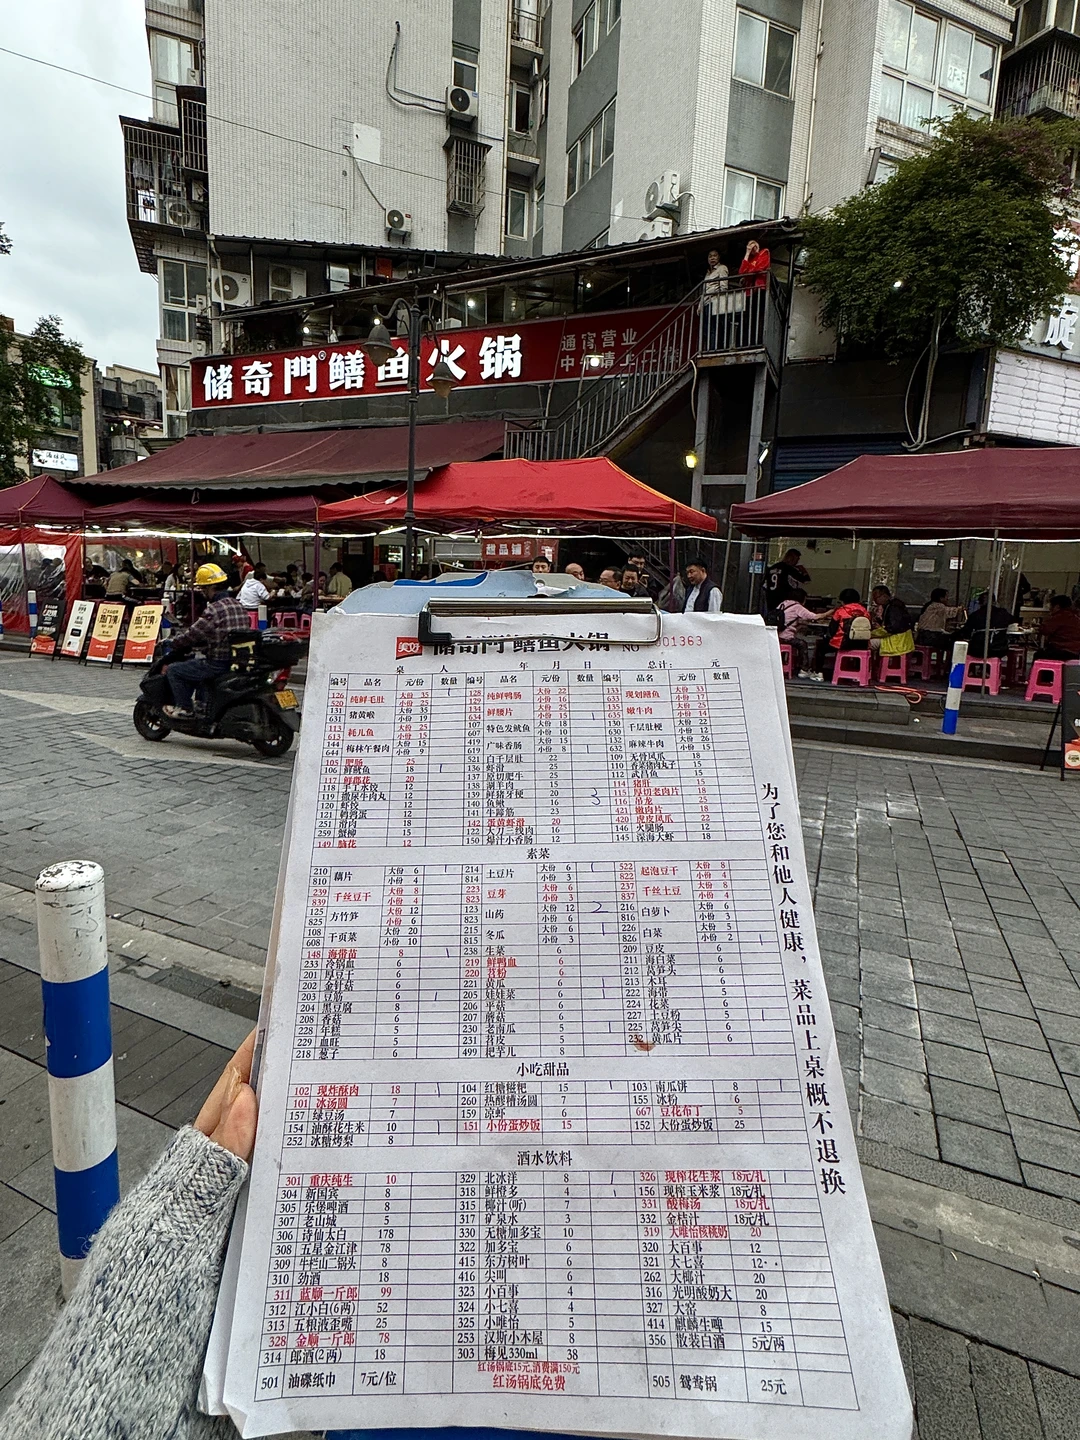 储奇門®鳝鱼火锅
通宵营业
储奇門鳝鱼火锅
NO
桌 人 年 月 日 总计： 元
编号 品名 元/份 数量 编号 品名 元/份 数量 编号 品名 元/份 数量
126 520 纯鲜毛肚 大份 35 128 纯鲜鸭肠 大份 22 现划鳝鱼 大份 33
131 631 猪黄喉 大份 35 小份 19 鲜腰片 嫩牛肉
113 613 耗儿鱼 大份 25 小份 15 107 607 特色发鱿鱼 大份 18 小份 10 130 630 千层肚梗 大份 22 小份 12
144 644 梅林午餐肉 大份 15 小份 9 419 619 广味香肠 大份 15 小份 8 132 632 麻辣牛肉 大份 26 小份 15
105 肥肠 25 521 白千层肚 22 109 无骨凤爪 15
106 鲜鱿鱼 18 136 虾滑 25 110 香菜猪肉丸子 15
117 鲜郡花 20 137 原切肥牛 25 112 武昌鱼 15
118 手工水饺 12 138 涮羊肉 15 114 猪肚 15
119 撒尿牛肉丸 12 139 鲜猪牙梗 20 115 厚切老肉片 18
120 虾饺 12 140 鱼鳅 16 116 吊龙 25
121 鹌鹑蛋 12 141 牛蹄筋 23 421 嫩肉片 18
251 滑肉 18 142 蛋黄虾滑 20 420 虎皮凤爪 22
259 蟹柳 15 122 大刀三线肉 16 146 火腿肠 12
149 脑花 12 150 爆汁小香肠 12 145 深海大虾 18
素菜
210 810 藕片 大份 6 小份 4 214 814 土豆片 大份 6 小份 3 522 822 起泡豆干 大份 8 小份 4
239 839 千丝豆干 大份 8 小份 4 223 823 豆芽 大份 6 小份 3 237 837 千丝土豆 大份 8 小份 4
125 825 方竹笋 大份 12 小份 6 123 823 山药 大份 12 小份 6 216 816 白萝卜 大份 6 小份 3
108 608 干页菜 大份 20 小份 10 215 815 冬瓜 大份 6 小份 3 226 826 白菜 大份 5 小份 2
148 海带苗 8 238 生菜 6 209 豆皮 6
233 冷锅血 6 219 鲜鸭血 6 211 海白菜 6
201 厚豆干 6 220 苕粉 6 212 莴笋头 6
202 金针菇 6 221 黄瓜 6 213 木耳 6
203 豆筋 6 205 娃娃菜 6 222 海带 5
204 黑豆腐 8 206 平菇 6 224 花菜 6
208 香菇 6 207 蘑菇 6 227 土豆粉 5
228 年糕 5 230 老南瓜 5 225 莴笋尖 6
229 血旺 5 231 苕皮 5 232 黄瓜片 6
218 葱子 6 499 耙芋儿 8
小吃甜品
102 现炸酥肉 18 104 红糖糍粑 15 103 南瓜饼 8
101 冰汤圆 7 260 热醪糟汤圆 7 155 冰粉 6
157 绿豆汤 7 159 凉虾 6 667 豆花布丁 5
154 油酥花生米 10 151 小份蛋炒饭 15 152 大份蛋炒饭 25
252 冰糖烤梨 8
酒水饮料
301 重庆纯生 10 329 北冰洋 8 326 现榨花生浆 18元/扎
304 新国宾 8 318 鲜橙多 4 156 现榨玉米浆 18元/扎
305 乐堡啤酒 8 315 椰汁(听) 7 331 酸梅汤 18元/扎
307 老山城 5 317 矿泉水 3 332 金桔汁 18元/扎
306 诗仙太白 178 330 无糖加多宝 10 319 大唯怡核桃奶 20
308 五星金江津 78 322 加多宝 6 320 大百事 12
309 牛栏山二锅头 8 415 东方树叶 6 321 大七喜 12
310 劲酒 18 416 尖叫 6 262 大椰汁 20
311 蓝顺一斤郎 99 323 小百事 4 316 光明酸奶大 20
312 江小白(6两) 52 324 小七喜 4 327 大窑 8
313 五粮液歪嘴 25 325 小唯怡 5 414 麒麟生啤 15
328 金顺一斤郎 78 253 汉斯小木屋 8 356 散装白酒 5元/两
314 郎酒(2两) 18 303 梅见330ml 38
501 油碟纸巾 7元/位 红汤锅底15元,消费满150元 505 鸳鸯锅 25元
红汤锅底免费
为了您和他人健康，菜品上桌概不退换